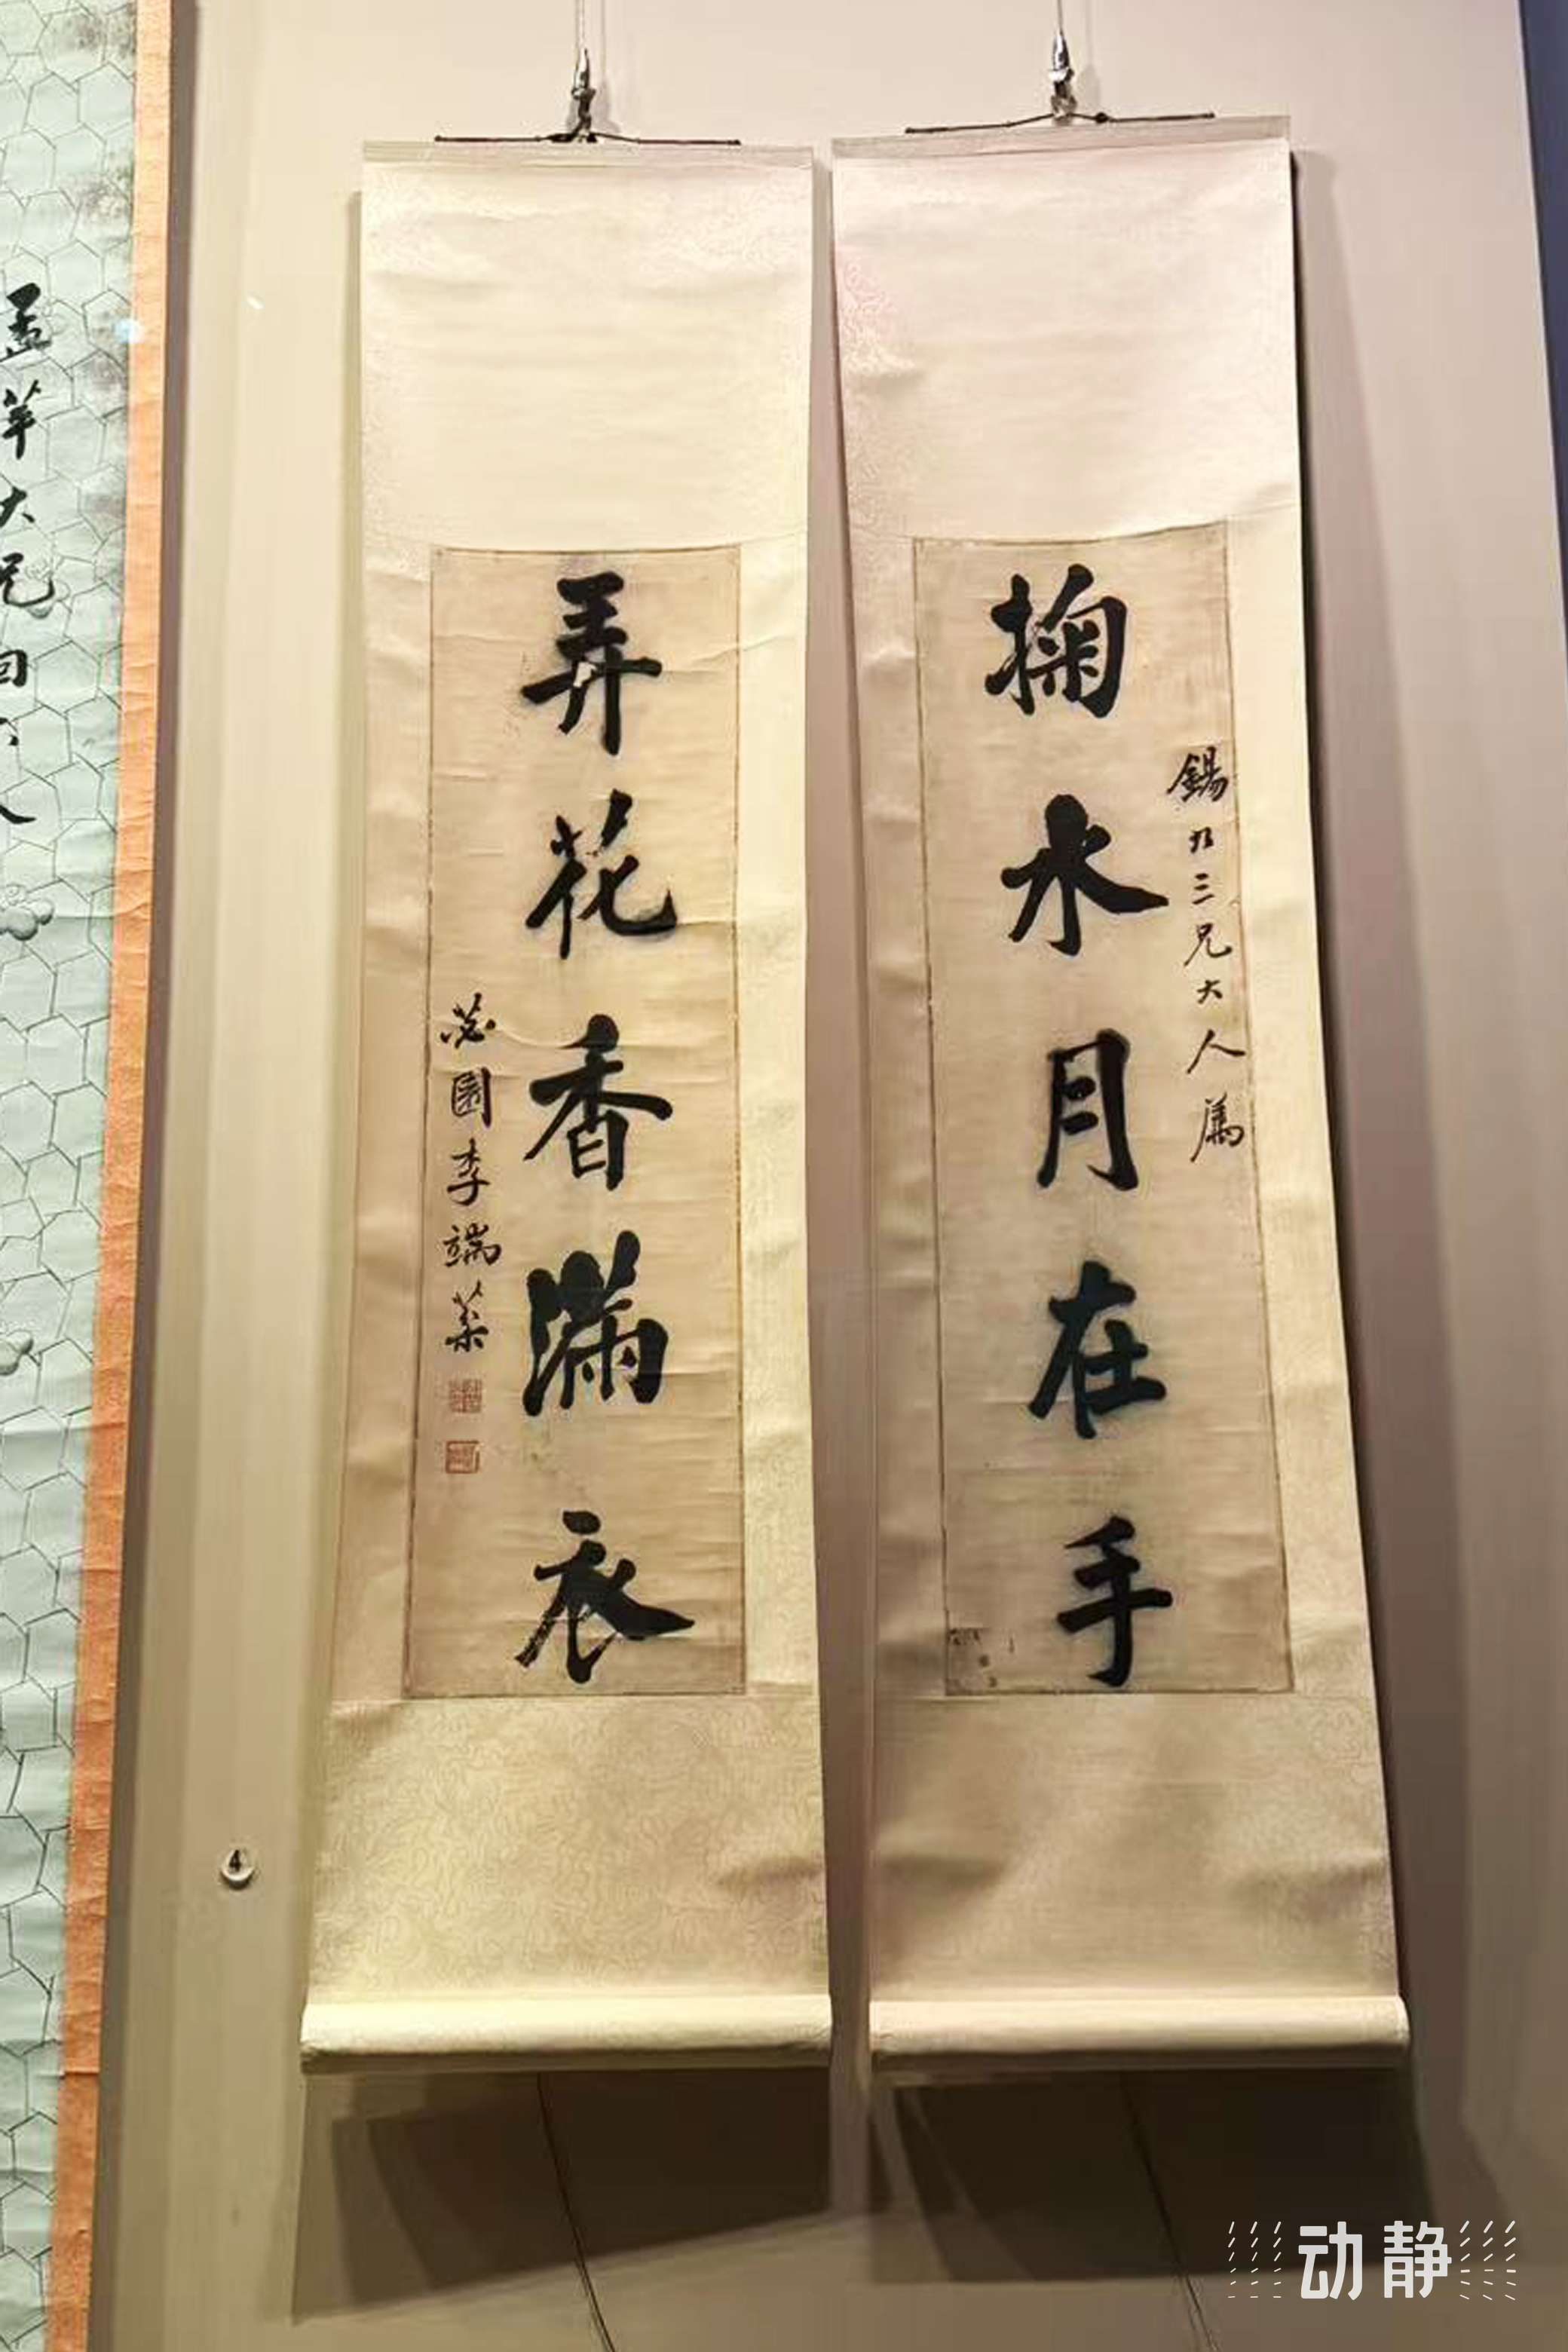 掬水月在手
錫九三兄大人屬
弄花香滿衣
苾園李端棻
孟莘大兄
4
动静